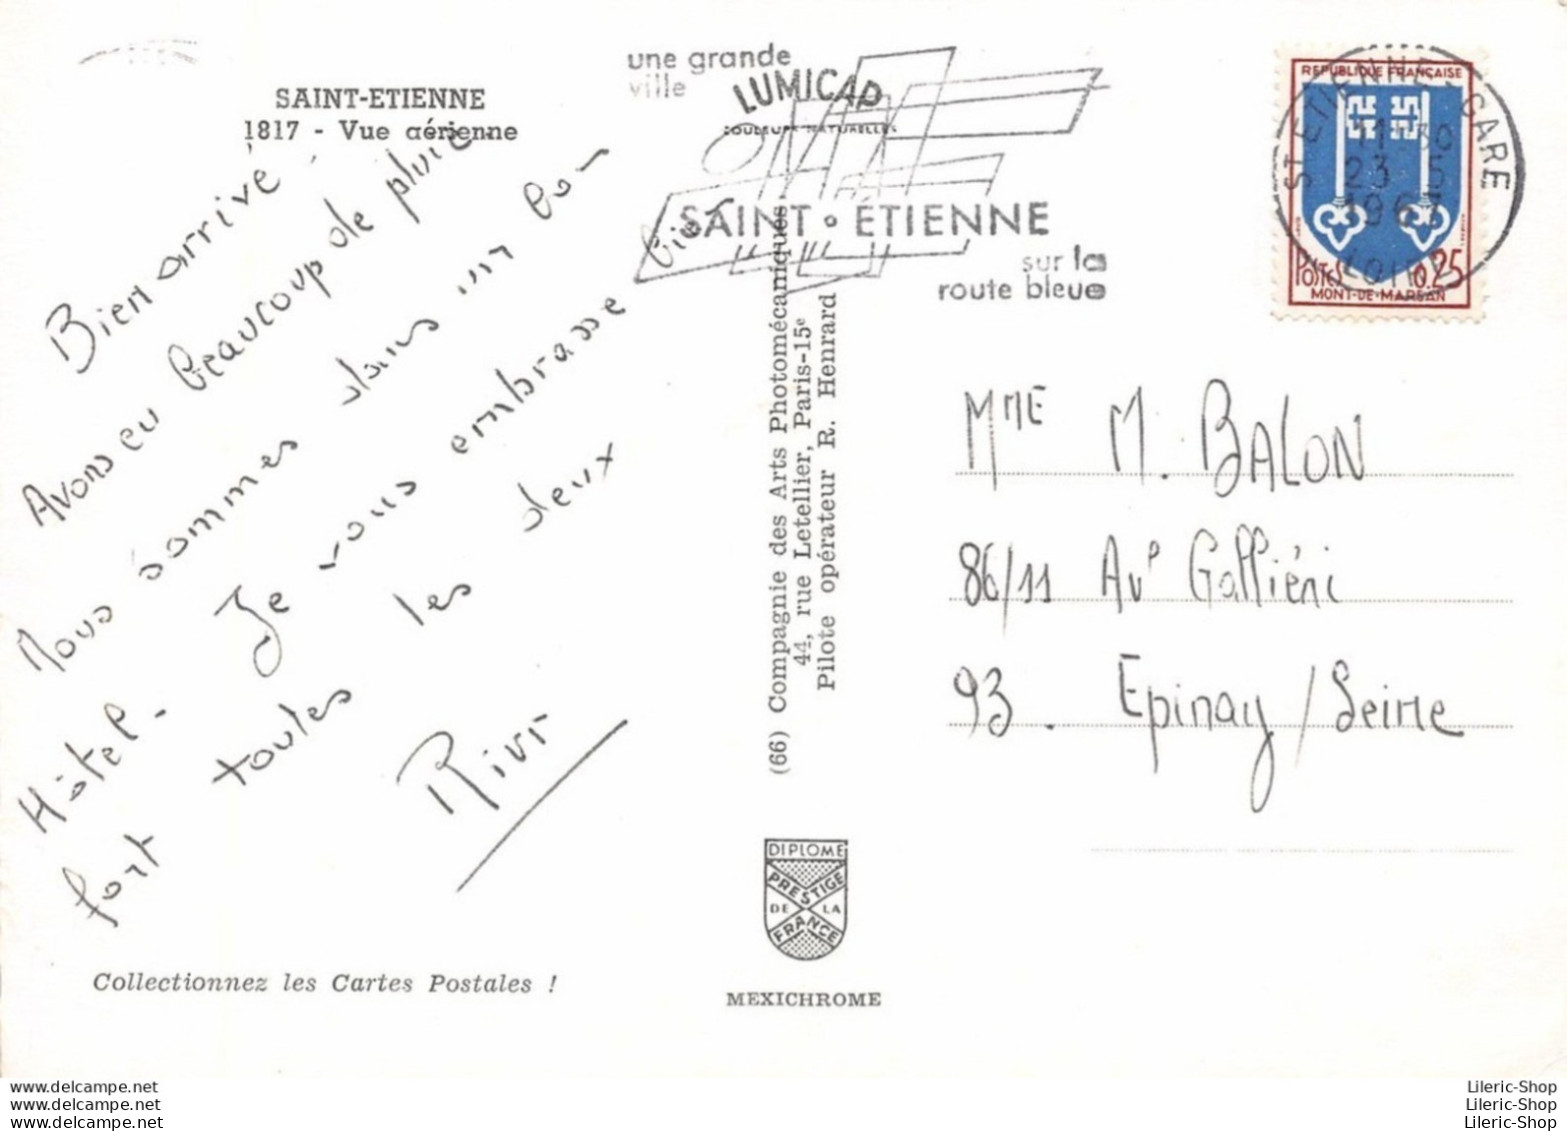 SAINT-ETIENNE
1817 - Vue aérienne
Bien arrivé.
Avons eu beaucoup de pluie.
Nous sommes dans un bon
Hôtel. Je vous embrasse bien
fort toutes les deux
une grande
ville
LUMICAP
COULEURS NATURELLES
SAINT • ÉTIENNE
sur la
route bleue
REPUBLIQUE FRANÇAISE
POSTES 0,25
MONT-DE-MARSAN
ST ETIENNE-GARE
11H30
23 - 5
1967
LOIRE
(66) Compagnie des Arts Photomécaniques
44, rue Letellier, Paris-15e
Pilote opérateur R. Henrard
MME M. BALON
86/11 Ave Galliéni
93. Epinay/Seine
DIPLOME
PRESTIGE
DE LA
FRANCE
MEXICHROME
Collectionnez les Cartes Postales !
www.delcampe.net
www.delcampe.net
www.delcampe.net
Lileric-Shop
Lileric-Shop
Lileric-Shop